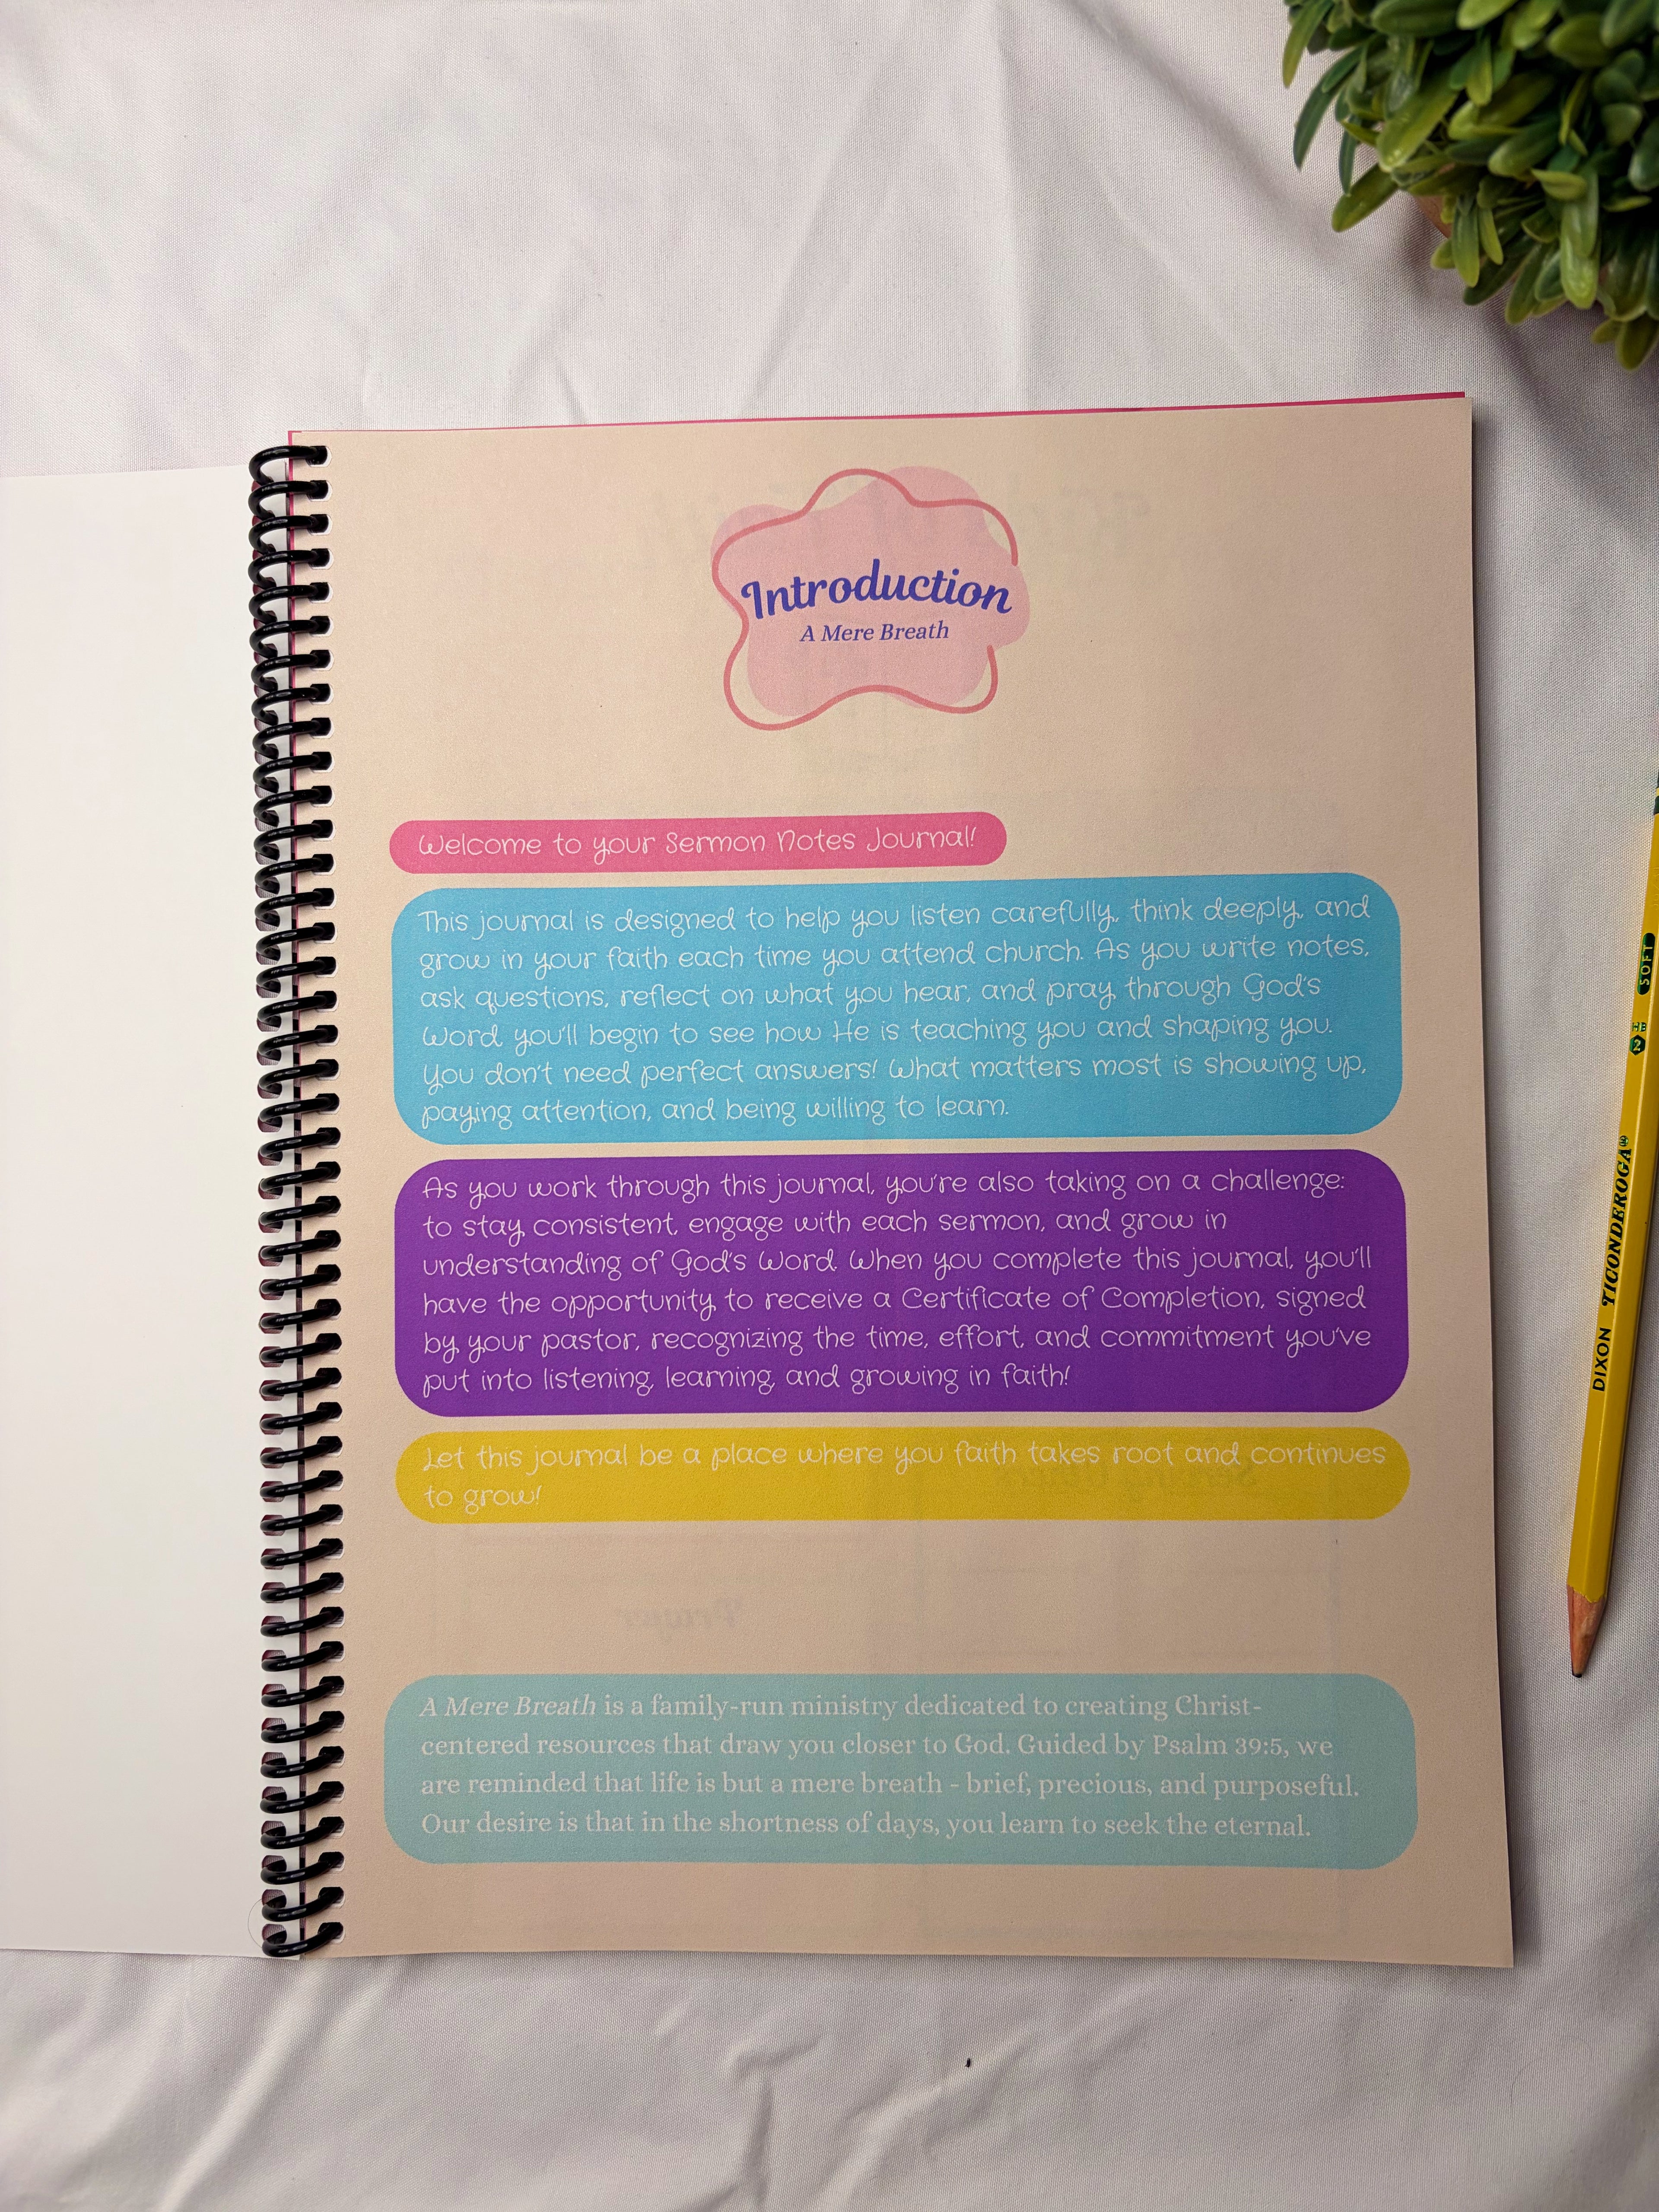 Introduction
A Mere Breath
Welcome to your Sermon Notes Journal!
This journal is designed to help you listen carefully, think deeply, and
grow in your faith each time you attend church. As you write notes,
ask questions, reflect on what you hear, and pray through God's
Word you'll begin to see how He is teaching you and shaping you.
You don't need perfect answers! What matters most is showing up,
paying attention, and being willing to learn.
As you work through this journal, you're also taking on a challenge:
to stay consistent, engage with each sermon, and grow in
understanding of God's Word. When you complete this journal, you'll
have the opportunity to receive a Certificate of Completion, signed
by your pastor, recognizing the time, effort, and commitment you've
put into listening, learning, and growing in faith!
Let this journal be a place where you faith takes root and continues
to grow!
A Mere Breath is a family-run ministry dedicated to creating Christ-
centered resources that draw you closer to God. Guided by Psalm 39:5, we
are reminded that life is but a mere breath - brief, precious, and purposeful.
Our desire is that in the shortness of days, you learn to seek the eternal.
DIXON TICONDEROGA® HB 2 SOFT